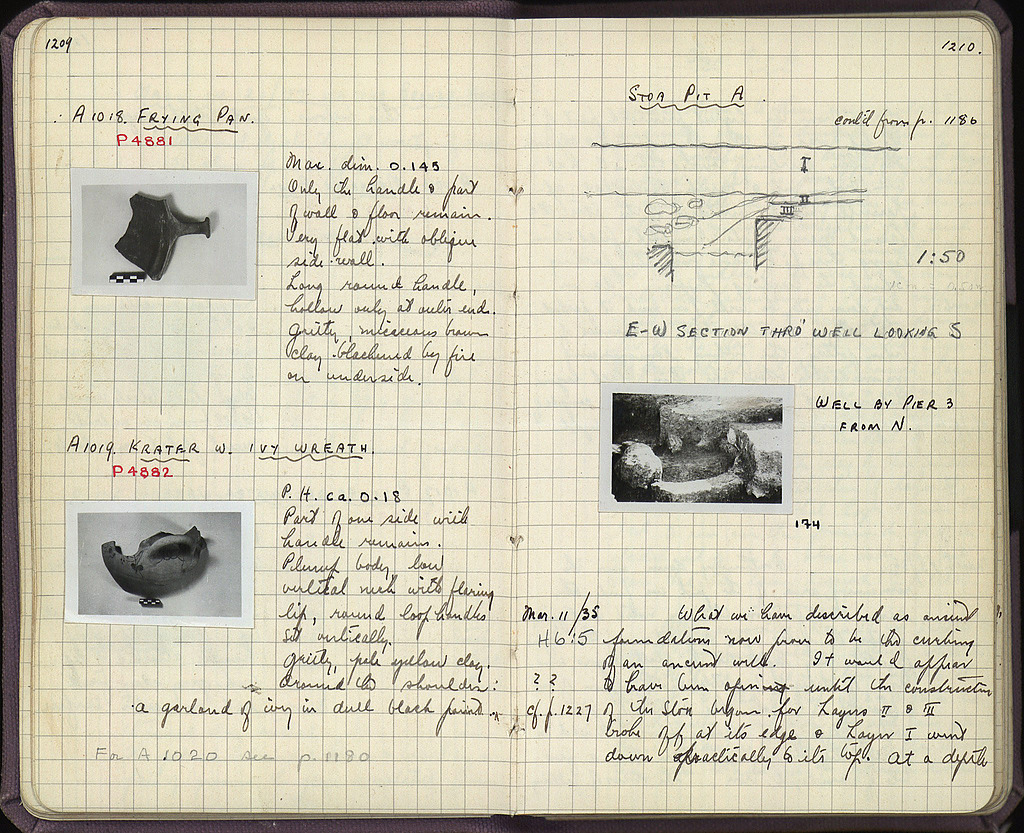 1209
A1018. FRYING PAN.
P4881
Max. dim. 0.145
Only the handle & part
of wall & floor remain.
Very flat with oblique
side wall.
Long round handle,
hollow only at outer end.
Gritty, micaceous brown
clay blackened by fire
on underside.
A1019. KRATER W. IVY WREATH.
P4882
P. H. ca. 0.18
Part of one side with
handle remains.
Plump body low
vertical neck with flaring
lip, round loop handles
set vertically.
Gritty, pale yellow clay.
Around the shoulder:
a garland of ivy in dull black paint.
For A 1020 see p. 1180
1210.
STOA PIT A.
cont'd from p. 1186
I
II
III
1:50
E-W SECTION THRO' WELL LOOKING S
WELL BY PIER 3
FROM N.
174
Mar. 11/35 What we have described as ancient
H6:5 foundations now prove to be the curbing
of an ancient well. It would appear
? ? to have been open until the construction
cf. p. 1227 of the Stoa began for Layers II & III
broke off at its edge & Layer I went
down practically to its top. At a depth